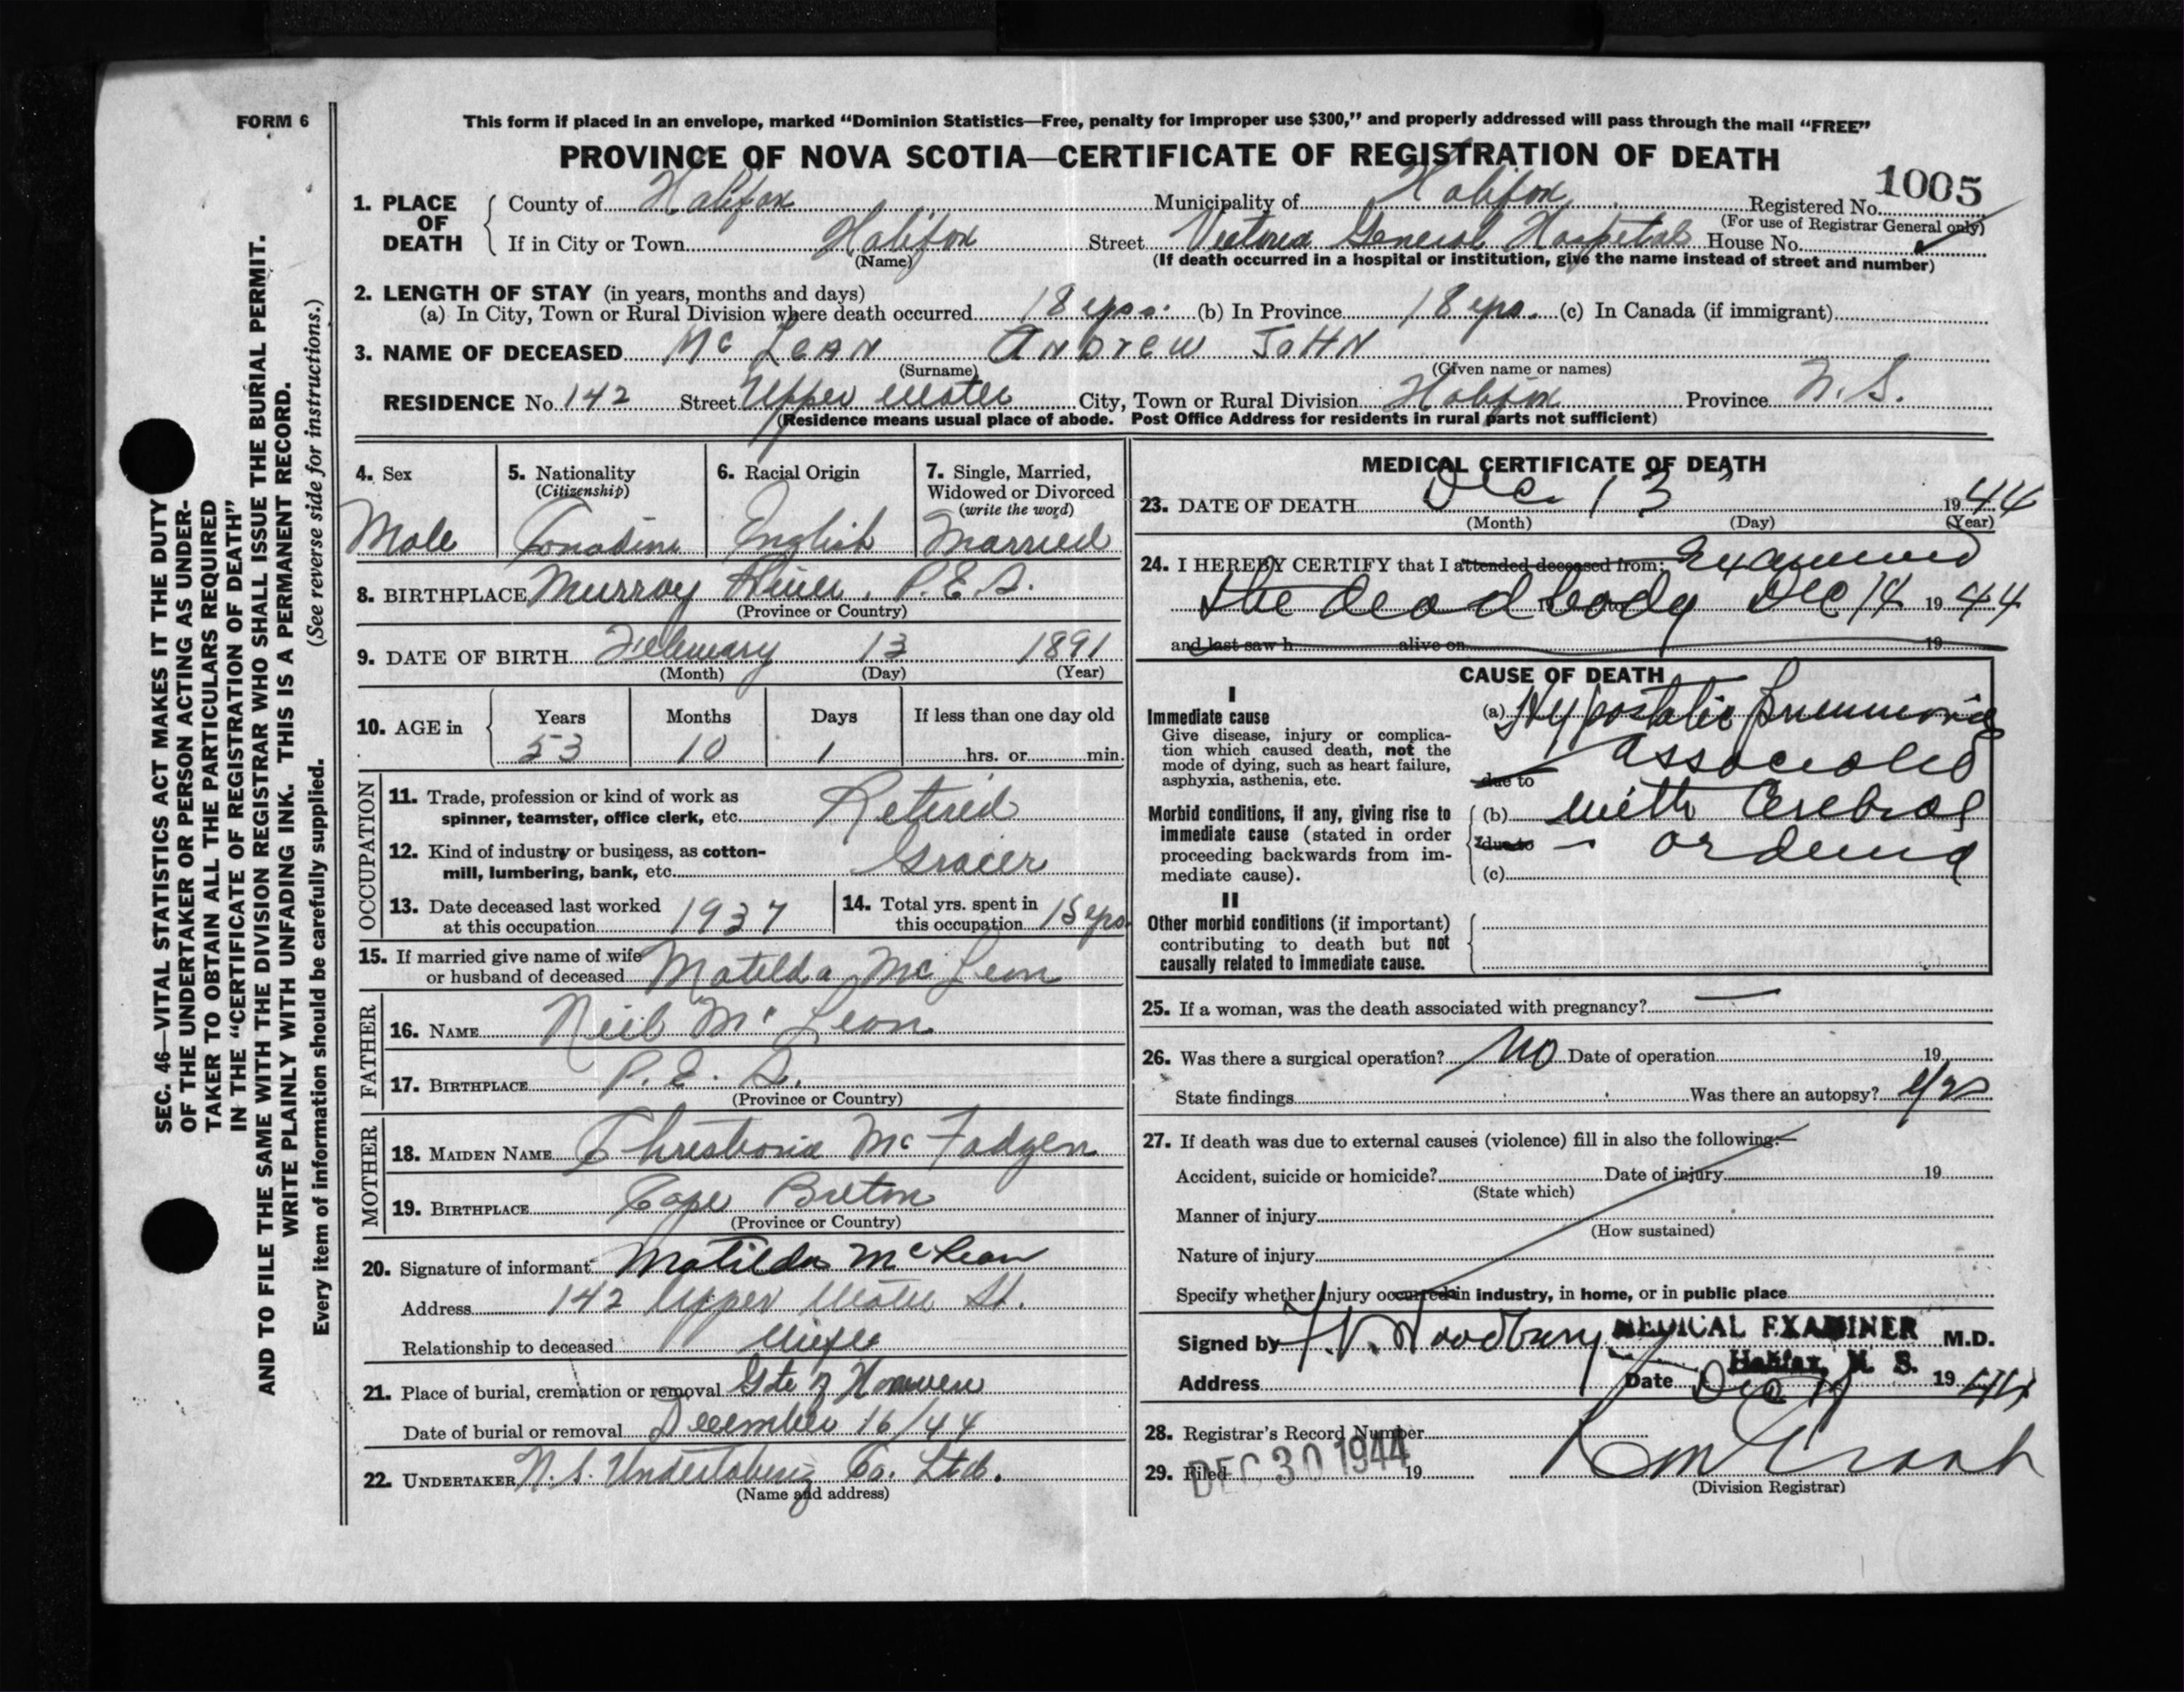 FORM 6
This form if placed in an envelope, marked “Dominion Statistics—Free, penalty for improper use $300,” and properly addressed will pass through the mail “FREE”
PROVINCE OF NOVA SCOTIA—CERTIFICATE OF REGISTRATION OF DEATH
1005
1. PLACE OF DEATH County of Halifax Municipality of Halifax Registered No.
(For use of Registrar General only)
If in City or Town Halifax Street Victoria General Hospital House No.
(Name) (If death occurred in a hospital or institution, give the name instead of street and number)
2. LENGTH OF STAY (in years, months and days)
(a) In City, Town or Rural Division where death occurred 18 yrs. (b) In Province 18 yrs. (c) In Canada (if immigrant)
3. NAME OF DECEASED Mc Lean Andrew John
(Surname) (Given name or names)
RESIDENCE No. 142 Street Upper Water City, Town or Rural Division Halifax Province N.S.
(Residence means usual place of abode. Post Office Address for residents in rural parts not sufficient)
4. Sex
Male
5. Nationality
(Citizenship)
Canadian
6. Racial Origin
English
7. Single, Married,
Widowed or Divorced
(write the word)
Married
8. BIRTHPLACE Murray River, P.E.I.
(Province or Country)
9. DATE OF BIRTH February 13 1891
(Month) (Day) (Year)
10. AGE in Years Months Days If less than one day old
53 10 1 hrs. or min.
OCCUPATION
11. Trade, profession or kind of work as
spinner, teamster, office clerk, etc. Retired
12. Kind of industry or business, as cotton-
mill, lumbering, bank, etc. Grocer
13. Date deceased last worked
at this occupation 1937
14. Total yrs. spent in
this occupation 15 yrs.
15. If married give name of wife
or husband of deceased Matilda Mc Lean
FATHER
16. NAME Neil Mc Lean
17. BIRTHPLACE P.E.I.
(Province or Country)
MOTHER
18. MAIDEN NAME Mc Fadgen
19. BIRTHPLACE Cape Breton
(Province or Country)
20. Signature of informant Matilda McLean
Address 142 Upper Water St.
Relationship to deceased Wife
21. Place of burial, cremation or removal Gate of Heaven
Date of burial or removal December 16/44
22. UNDERTAKER N.S. Undertaking Co. Ltd.
(Name and address)
MEDICAL CERTIFICATE OF DEATH
23. DATE OF DEATH Dec 13 1944
(Month) (Day) (Year)
24. I HEREBY CERTIFY that I attended deceased from: Examined
the dead body Dec 14 1944
and last saw h alive on 19
CAUSE OF DEATH
I
Immediate cause
Give disease, injury or complica-
tion which caused death, not the
mode of dying, such as heart failure,
asphyxia, asthenia, etc.
(a) Hypostatic Pneumonia
associated
due to
Morbid conditions, if any, giving rise to
immediate cause (stated in order
proceeding backwards from im-
mediate cause).
(b) with Cerebral
due to oedema
(c)
II
Other morbid conditions (if important)
contributing to death but not
causally related to immediate cause.
25. If a woman, was the death associated with pregnancy? —
26. Was there a surgical operation? No Date of operation 19
State findings Was there an autopsy? yes
27. If death was due to external causes (violence) fill in also the following:—
Accident, suicide or homicide? Date of injury 19
(State which)
Manner of injury
(How sustained)
Nature of injury
Specify whether injury occurred in industry, in home, or in public place
Signed by Woodbury MEDICAL EXAMINER M.D.
Halifax, N. S.
Address Date Dec 1944
28. Registrar's Record Number
29. Filed DEC 30 1944 19
(Division Registrar)
SEC. 46—VITAL STATISTICS ACT MAKES IT THE DUTY
OF THE UNDERTAKER OR PERSON ACTING AS UNDER-
TAKER TO OBTAIN ALL THE PARTICULARS REQUIRED
IN THE “CERTIFICATE OF REGISTRATION OF DEATH”
AND TO FILE THE SAME WITH THE DIVISION REGISTRAR WHO SHALL ISSUE THE BURIAL PERMIT.
WRITE PLAINLY WITH UNFADING INK. THIS IS A PERMANENT RECORD.
Every item of information should be carefully supplied. (See reverse side for instructions.)